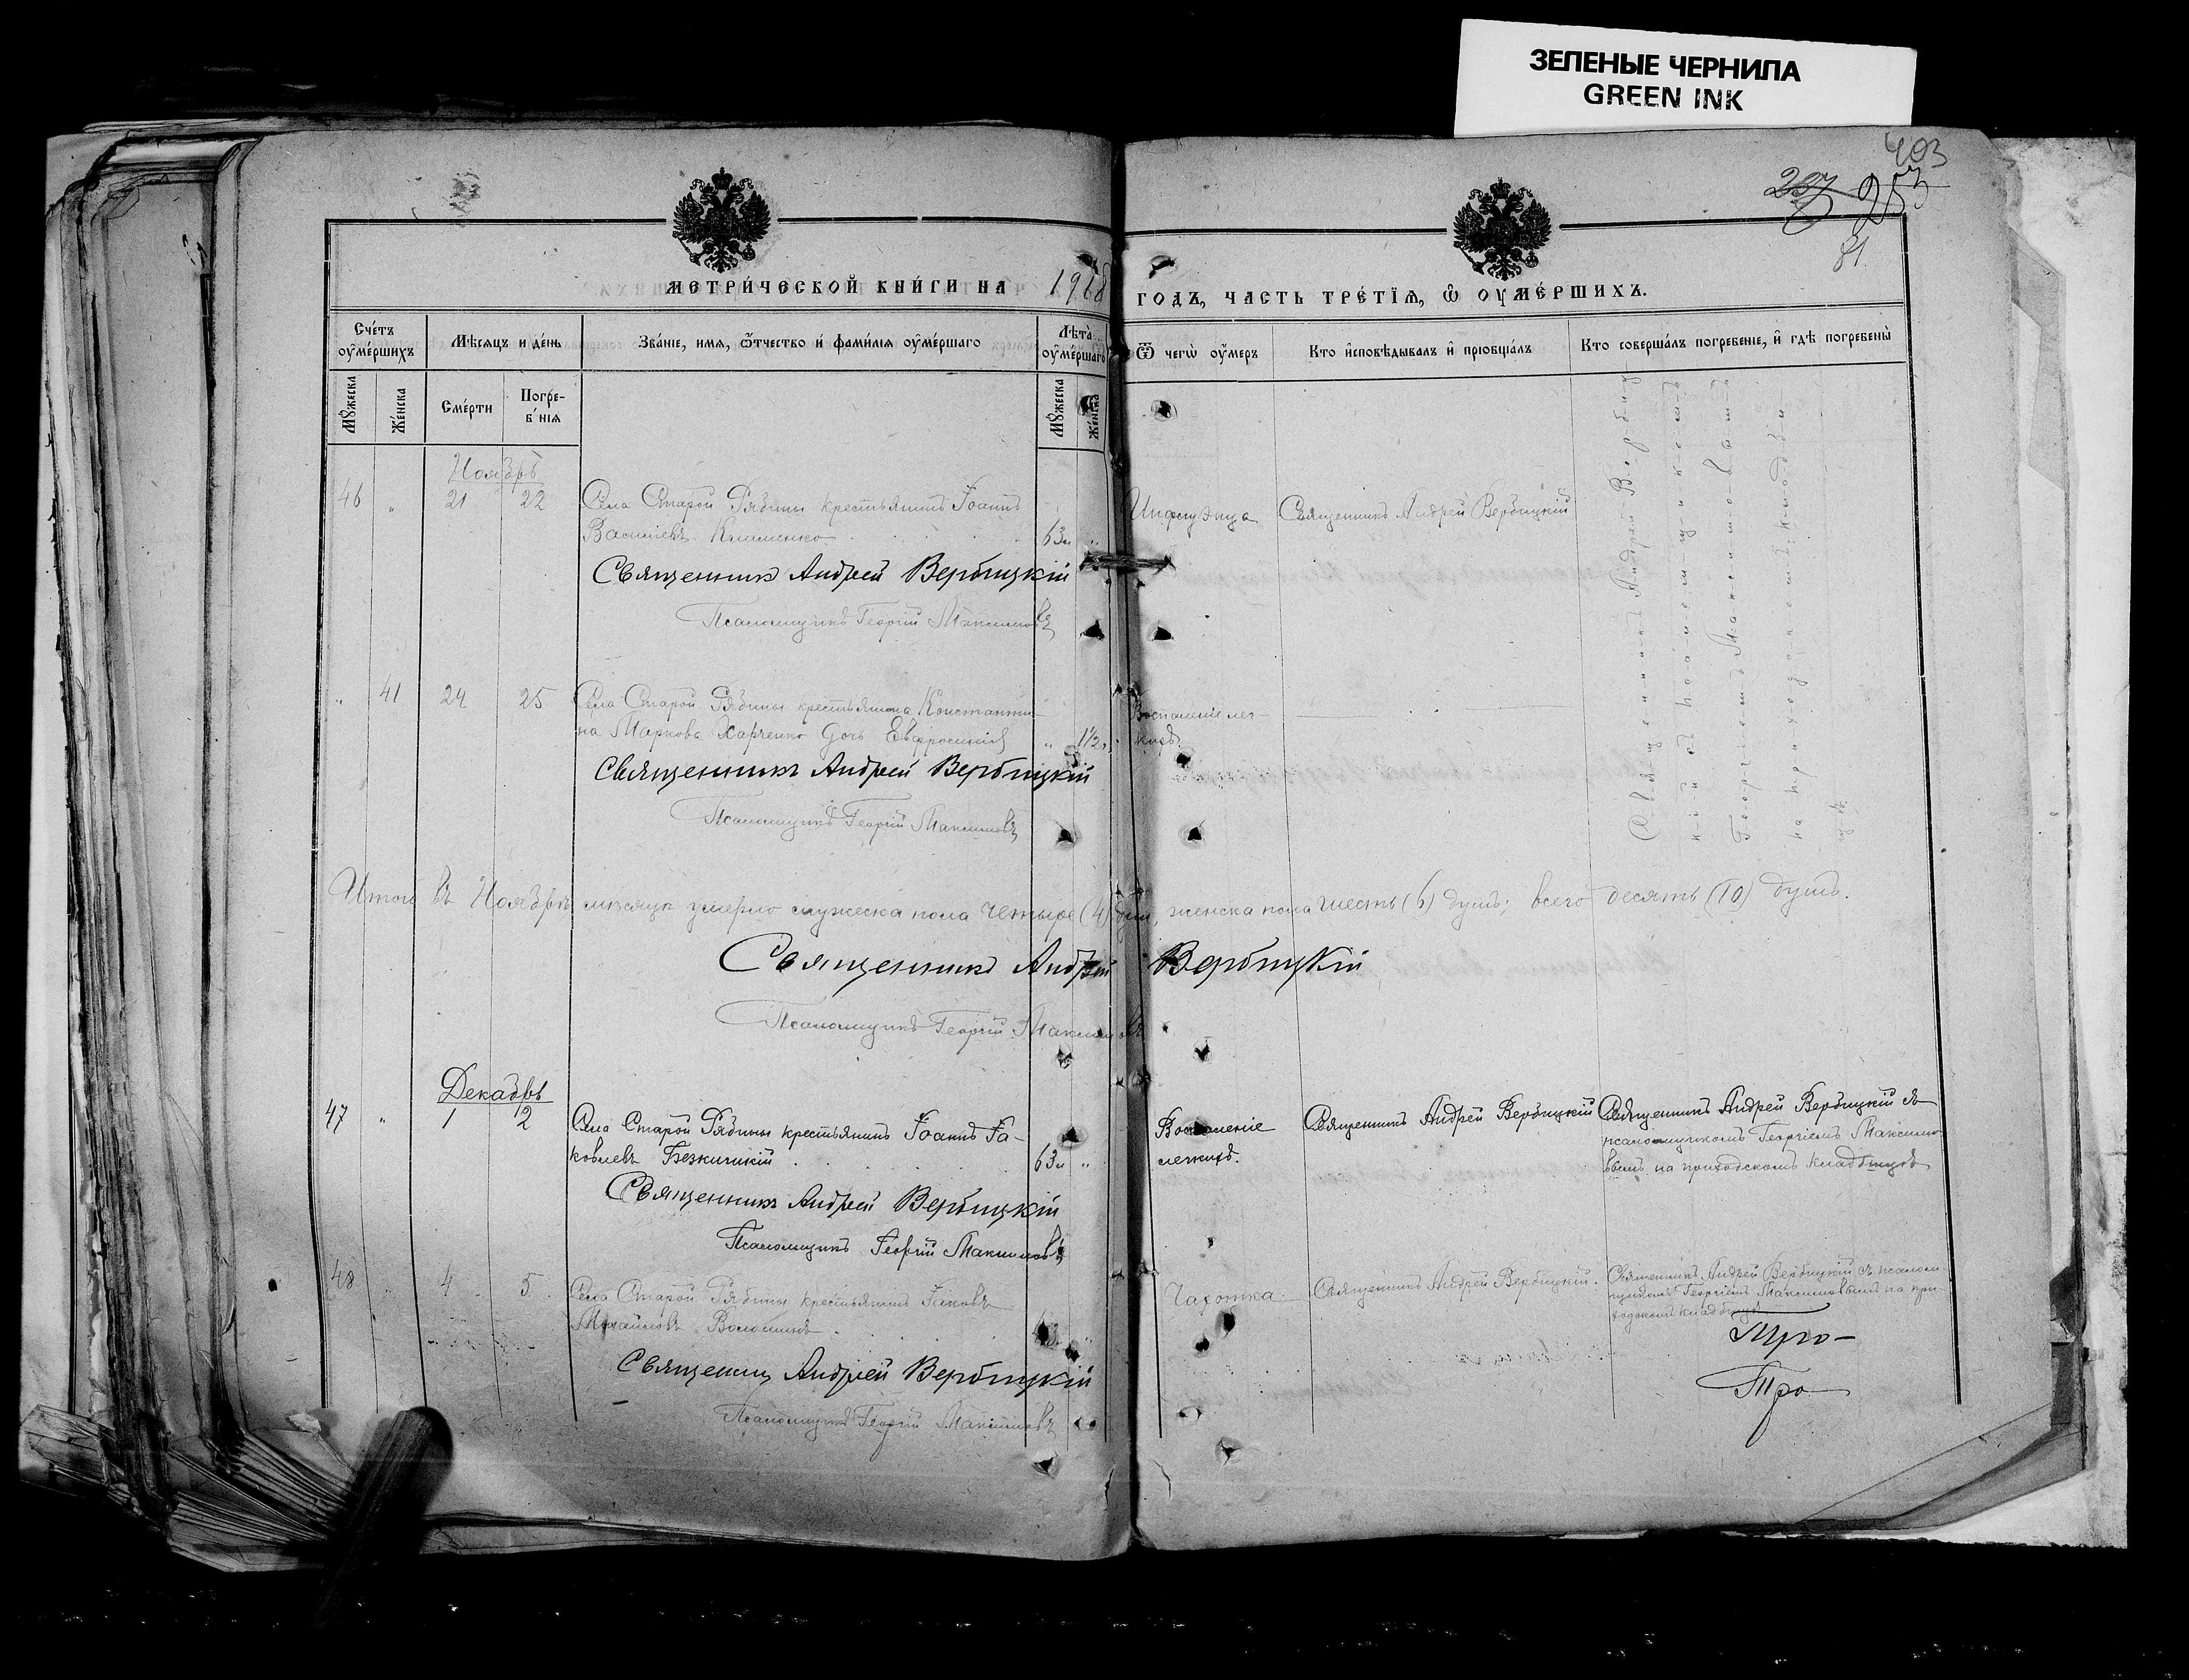 ЗЕЛЕНЫЕ ЧЕРНИЛА
GREEN INK
403
237 253
81
МЕТРИ́ЧЕСКОЙ КНИ́ГИ НА
ГОДЪ, ЧАСТЬ ТРЕ́ТЇѦ, Ѡ҆ ОУ҆МЕ́РШИХЪ.
Сче́тъ оу҆ме́ршихъ
Мѣсяцъ и де́нь
Зва́нїе, имѧ, ѻ҆́тчество и҆ фами́лїѧ оу҆ме́ршагѡ
Лѣта̀ оу҆ме́ршагѡ
Ѿ чегѡ̀ оу҆́меръ
Кто и҆сповѣ́дывалъ и҆ прїобща́лъ
Кто соверша́лъ погребе́нїе, и҆ гдѣ̀ погребены̀
Мꙋ́жеска
Же́нска
Сме́рти
Погре-
б́нїѧ
Мꙋ́жеска
Же́нска
Ноябрь
46 " 21 22 Села Старой Рябины крестьянинъ Іоаннъ
Васильевъ Клименко 63 " Инфлуэнца Священникъ Андрей Вербицкій
Священникъ Андрей Вербицкій
Псаломщикъ Георгій Максимовъ
" 41 24 25 Села Старой Рябины крестьянина Константи-
на Маркова Харченко дочь Евфросинія " 1½ Воспаленіе лег-
кихъ.
Священникъ Андрей Вербицкій
Псаломщикъ Георгій Максимовъ
Священникъ Андрей Вербиц
кій съ псаломщикомъ
Георгіемъ Максимовымъ
на приходскомъ кладби
щѣ.
Итого въ Ноябрѣ мѣсяцѣ умерло мужеска пола четыре (4) душ, женска пола шесть (6) душъ; всего десять (10) душъ.
Священникъ Андрей Вербицкій
Псаломщикъ Георгій Максимовъ
Декабрь
47 " 1 2 Села Старой Рябины крестьянинъ Іоаннъ Іа-
ковлевъ 63 " Воспаленіе
легкихъ. Священникъ Андрей Вербицкій Священникъ Андрей Вербицкій съ
псаломщикомъ Георгіемъ Максимо-
вымъ на приходскомъ кладбищѣ
Священникъ Андрей Вербицкій
Псаломщикъ Георгій Максимовъ
48 4 5 Села Старой Рябины крестьянинъ Іаковъ
Михайловъ Волошинъ Чахотка Священникъ Андрей Вербицкій. Священникъ Андрей Вербицкій съ псалом-
щикомъ Георгіемъ Максимовымъ на при-
ходскомъ кладбищѣ
Священникъ Андрей Вербицкій
Псаломщикъ Георгій Максимовъ